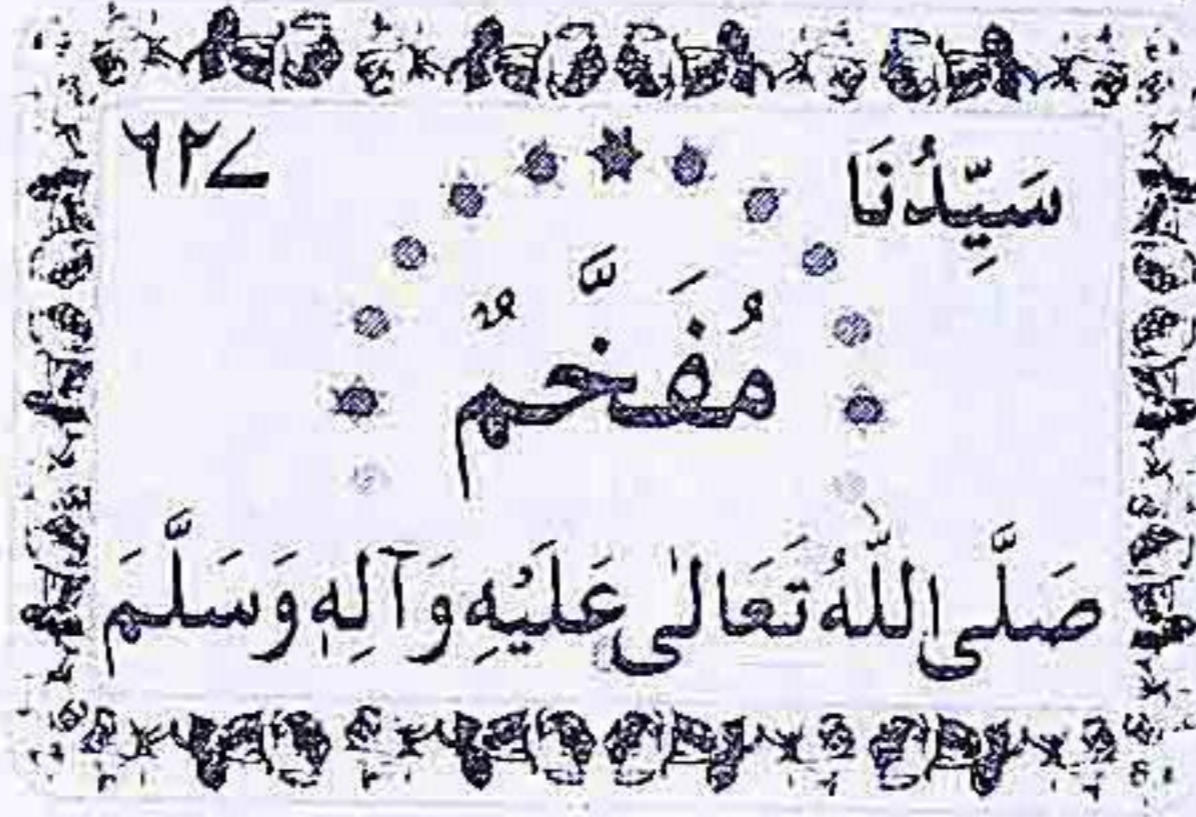 سَيِّدُنَا ٦٢٧
مُفَخَّمٌ
صَلَّى اللّٰهُ تَعَالٰى عَلَيْهِ وَآلِهٖ وَسَلَّمَ